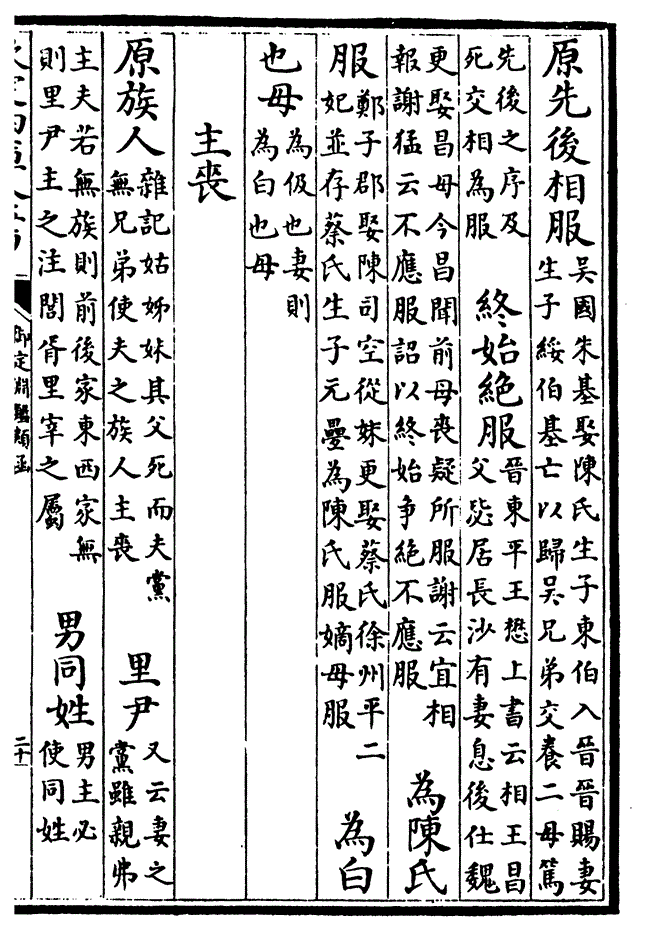 原先後相服
吳國朱基娶陳氏生子東伯入晉晉賜妻
生子綏伯基亡以歸吳兄弟交養二母篤
先後之序及
死交相為服
終始絕服
晉東平王懋上書云相王昌
父毖居長沙有妻息後仕魏
更娶昌母今昌聞前母喪疑所服謝云宜相
報謝猛云不應服詔以終始爭絕不應服
為陳氏
服
鄭子郡娶陳司空從妹更娶蔡氏徐州平二
妃並存蔡氏生子元疊為陳氏服嫡母服
為白
也母
為伋也妻則
為白也母
主喪
原族人
雜記姑姊妹其父死而夫黨
無兄弟使夫之族人主喪
里尹
又云妻之
黨雖親弗
主夫若無族則前後家東西家無
則里尹主之注閭胥里宰之屬
男同姓
男主必
使同姓
御定淵鑑類函
二十